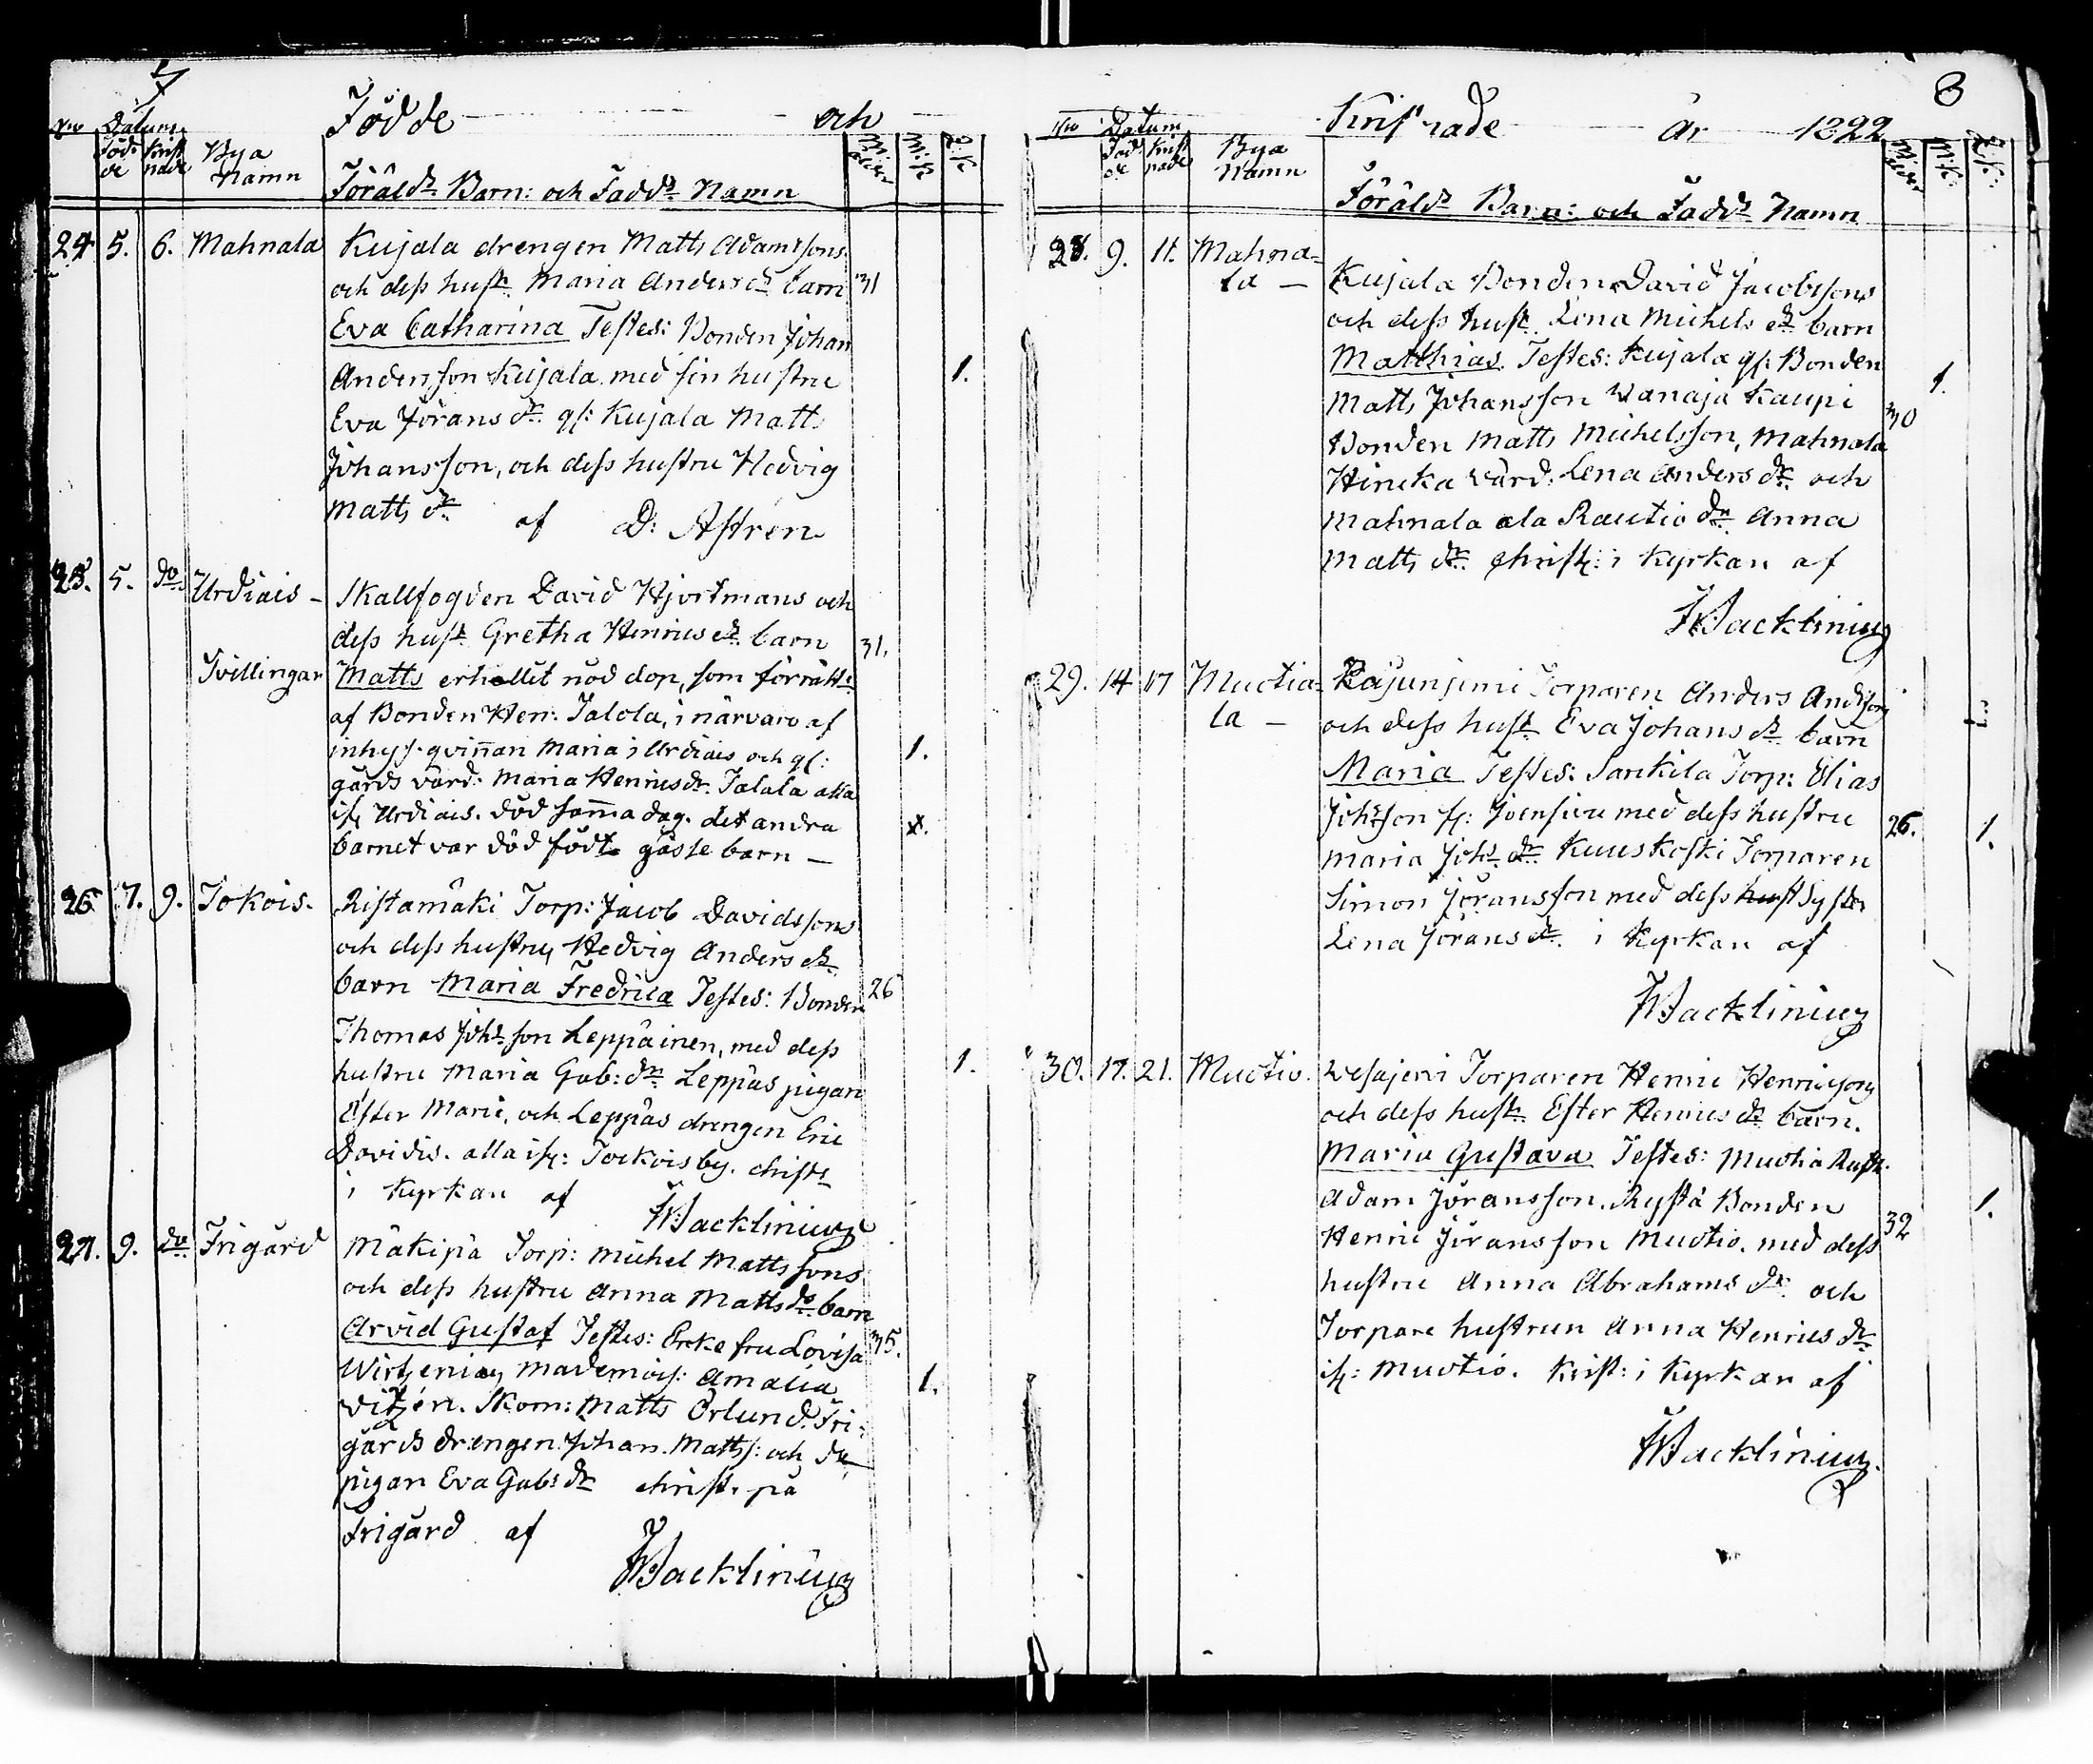 7
Födde och
No Datum
Föd=de Krist nade Bya Namn Förälds Barn: och Fadds Namn M: ålder M:K Q:K
24 5. 6. Mahnala Kujala drengen Matts Adamssons
och dess hust. Maria Andersdr barn 31
Eva Catharina Testes: Bonden Johan
Andersson Kujala med sin hustru 1.
Eva Jöransdr. qs: Kujala Matts
Johansson, och dess hustru Hedvig
Matts dr. af D: Astren
25. 5. do Urdiais - Skallfogden David Hjortmans och
dess hust Gretha Henricsdr. barn 31.
Tvillingar Matts erhollit nöd dop, som förrätts
af Bonden Hen: Talola, i närvaro af
inhys: qvinnan Maria i Urdiais och qs: 1.
gårds värd: Maria Henricsdr. Talala alla
ifr Urdiais. död samma dag. det andra x.
barnet var död födt gosse barn —
26 7. 9. Jokois. Ristamäki Torp: Jacob Davidssons
och dess hustru Hedvig Andersdr.
barn Maria Fredrica Testes: Bonden 26
Thomas Johsson Leppäinen, med dess
hustru Maria Gab: dr Leppäs pigan 1.
Ester Marie, och Leppäs drengen Eric
Davidis. alla ifr: Jockois by. christ
i Kyrkan af FWacklinius
27. 9. do Frigård Mäkipä Torp: Michel Mattssons
och dess hustru Anna Matts dr barn
Arvid Gustaf Testes: Enke fru Lovisa 35.
Wirtzenius, Mademois: Amalia 1.
Witzén. Skom: Matts Örlund. Fri-
gårds drengen Johan Matts: och
pigan Eva Gabs dr christ. på
Frigård af
FWacklinius
8
Kristnade år 1822
No Datum
Föd de Krist nade Bya Namn Förälds Barn: och Fadds Namn M: ålder M:K: Q:K:
28. 9. 11. Mahna= Kujala Bonden David Jacobssons
la — och dess hust. Lena Michels dr barn
Matthias. Testes: Kujala qs: Bonden
Matts Johansson Wanaja Kaupi 30 1.
Bonden Matts Michelsson, Mahnala
Hineka värd: Lena Anders dr och
Mahnala ala Rautio dr Anna
Matts dr. christ: i Kyrkan af
FWacklinius
29. 14 17 Muotia= Rajunjemi Torparen Anders Andssons
la — och dess hust Eva Johans dr barn
Maria Testes: Sankila Torp: Elias
Johsson fr: Joensivu med dess hustru 26. 1.
Maria Johs dr Kuuskoski Torparen
Simon Jöransson med dess hust Syster
Lena Jörans dr. i Kyrkan af
FWacklinius
30. 17. 21. Muotio. Wesajervi Torparen Henric Henricssons
och dess hust: Ester Henrics dr barn.
Maria Gustava Testes: Muotia Rusth.
Adam Jöransson. Rystä Bonden 1.
Henric Jöransson Muotio. med dess 32
hustru Anna Abrahams dr. och
Torpare hustrun Anna Henrics dr
ifr: Muotio. Krist: i Kyrkan af
FWacklinius.